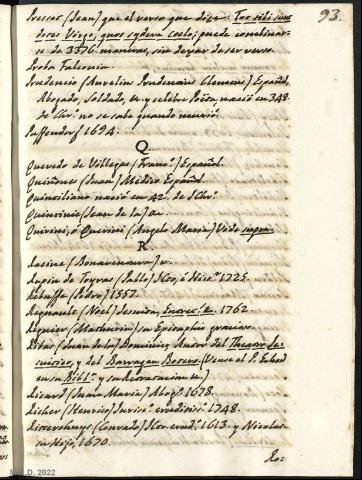 93.
Presser (Jean) que el verso que dize: Tot tibi sunt
dotes Virgo, quot sydera coelo; puede combinar-
se de 3376 maneras, sin dexar de ser verso.
Proba Falconia.
Prudencio (Aurelio Prudencio Clemens) Español,
Abogado, Soldado, &c. y celebre Poëta, nació en 348.
de Chr. no se sabe quando murió.
Puffendorf 1694.
Q
Quevedo de Villegas (Franc.º) Español.
Quiñones (Juan) Medico Español.
Quinctiliano nació en 42. de JChr.
Quintinie (Jean de la) &c.
Quirini, ó Querini (Angelo Maria) Vide supra.
R.
Racine (Bonaventura) v.
Rapin de Toyras (Pablo) 1725.
Rebuffe (Pedro) 1557.
Regnault (Noel) 1762.
Regnier (Mathurin) su Epitaphio gracioso.
Ribas (Juan de la) Dominico, Autor del Theatro Je-
suitico, y del Barragan Botero. (Vease el P.
en su Bibl.ª y su Retractacion &c.)
Ricard (Juan Maria) Abog.º 1678.
Richer (Henrico) Juris.º erudiciss.º 1748.
Rittershuys (Conrado) erud.º 1613. y Nicolas
su Hijo, 1670.
Ro=
D. 2022